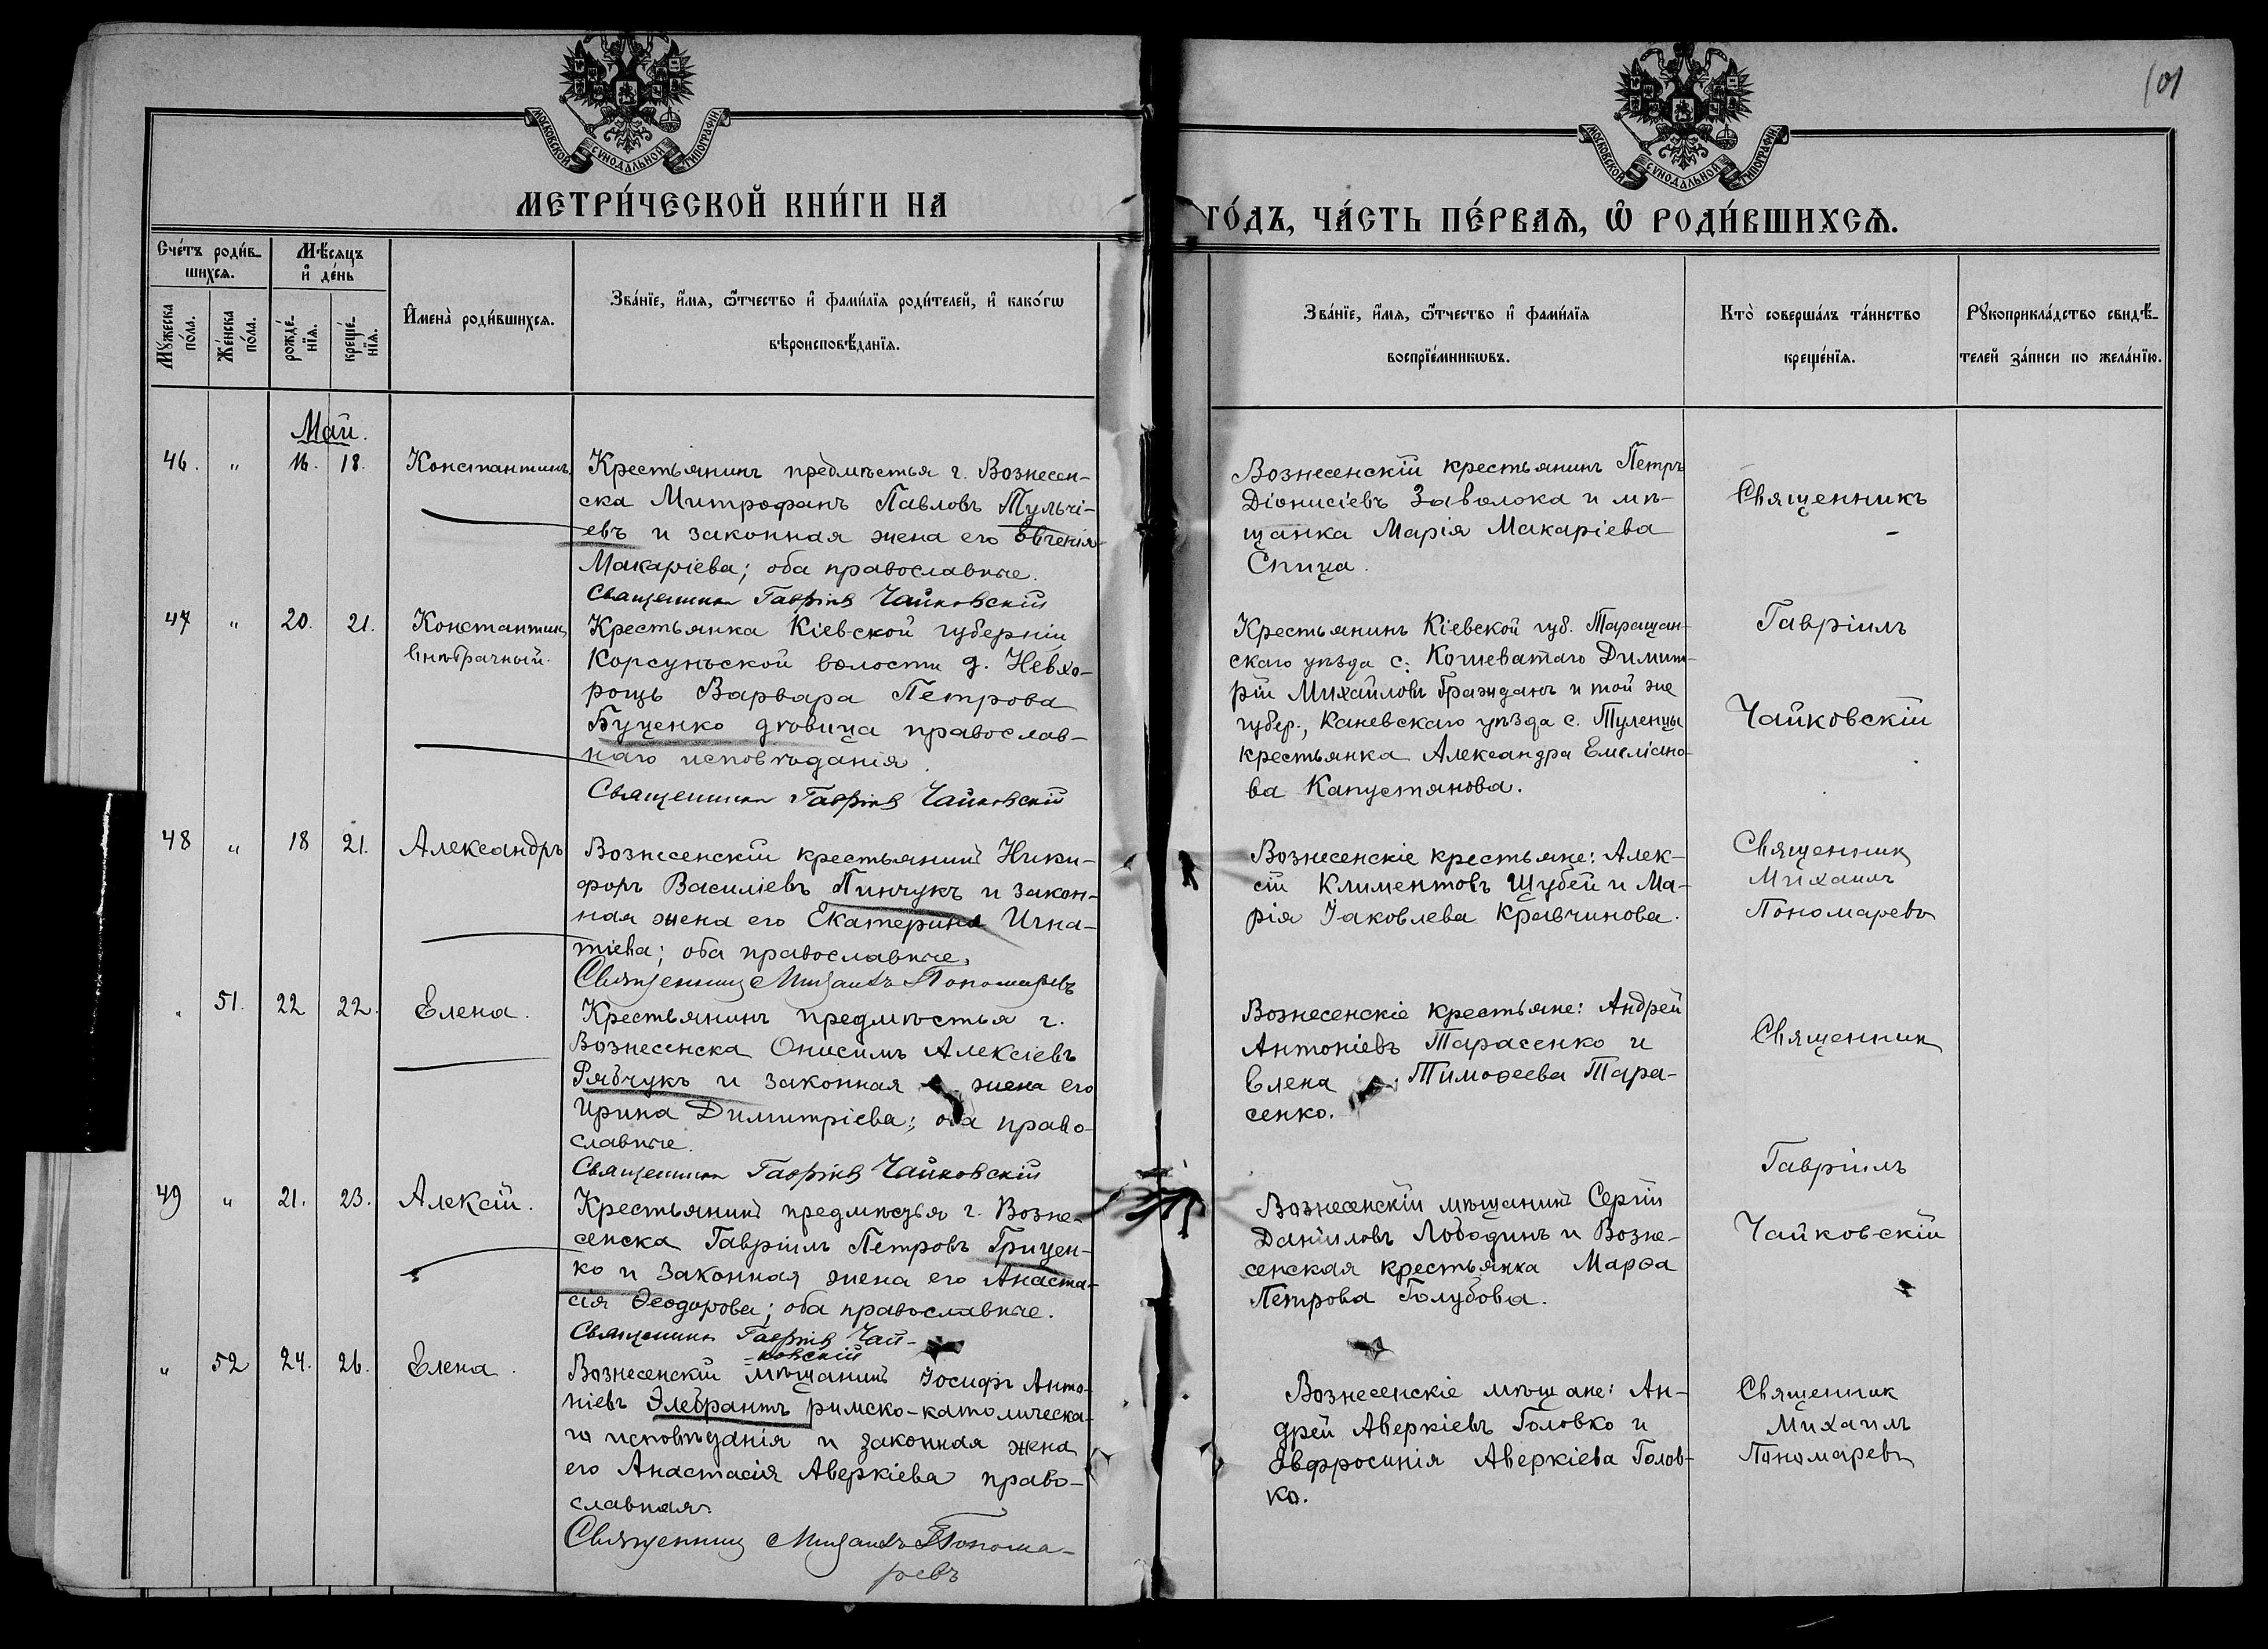 101
МОСКОВСКОЙ СѴНОДАЛЬНОЙ ТИПОГРАФІИ
МОСКОВСКОЙ СѴНОДАЛЬНОЙ ТИПОГРАФІИ
МЕТРИ́ЧЕСКОЙ КНИ́ГИ НА
ГО́ДЪ, ЧА́СТЬ ПЕ́РВАѦ, Ѡ҆ РОДИ́ВШИХСѦ.
Сче́тъ роди́в-
шихсѧ.
Мꙋ́жеска по́ла.
Же́нска по́ла.
Мѣ́сѧцъ
и҆ де́нь
рожде́-
нїѧ.
креще́-
нїѧ.
И҆мена̀ роди́вшихсѧ.
Зва́нїе, и҆́мѧ, ѻ҆́тчество и҆ фами́лїѧ роди́телей, и҆ како́гѡ
вѣроисповѣ́данїѧ.
Зва́нїе, и҆́мѧ, ѻ҆́тчество и҆ фами́лїѧ
воспрїе́мникѡвъ.
Кто̀ соверша́лъ та́инство
креще́нїѧ.
Рꙋкоприкла́дство свидѣ́-
телей за́писи по жела́нїю.
Май.
46. " 16. 18. Константинъ
Крестьянинъ предмѣстья г. Вознесен-
ска Митрофанъ Павловъ Тульчі-
евъ и законная жена его Евгенія
Макаріева; оба православные.
Священникъ Гавріилъ Чайковскій
Вознесенскій крестьянинъ Петръ
Діонисіевъ Заволока и мѣ-
щанка Марія Макаріева
Спица.
Священникъ
47 " 20. 21. Константинъ
внѣбрачный.
Крестьянка Кіевской губерніи
Корсуньской волости д. Нехво-
рощь Варвара Петрова
Буценко дѣвица православ-
наго исповѣданія.
Священникъ Гавріилъ Чайковскій
Крестьянинъ Кіевской губ. Таращан-
скаго уѣзда с. Кошеватаго Димит-
рій Михайловъ Гражданъ и той же
губер., Каневскаго уѣзда с. Туленцы
крестьянка Александра Емеліано-
ва Капустянова.
Гавріилъ
Чайковскій
48 " 18 21. Александръ
Вознесенскій крестьянинъ Ники-
форъ Василіевъ Пинчукъ и закон-
ная жена его Екатерина Игна-
тіева; оба православные.
Священникъ Михаилъ Пономаревъ
Вознесенскіе крестьяне: Алек-
сій Климентовъ Шубей и Ма-
рія Іаковлева Кравчинова.
Священникъ
Михаилъ
Пономаревъ
" 51. 22 22. Елена.
Крестьянинъ предмѣстья г.
Вознесенска Онисимъ Алексіевъ
Рябчукъ и законная жена его
Ирина Димитріева; оба право-
славные.
Священникъ Гавріилъ Чайковскій
Вознесенскіе крестьяне: Андрей
Антоніевъ Тарасенко и
Елена Тимоѳеева Тара-
сенко.
Священникъ
Гавріилъ
Чайковскій
49 " 21. 23. Алексій.
Крестьянинъ предмѣстья г. Возне-
сенска Гавріилъ Петровъ Грицен-
ко и законная жена его Анаста-
сія Ѳеодорова; оба православные.
Священникъ Гавріилъ Чай-
ковскій
Вознесенскій мѣщанинъ Сергій
Даніиловъ Лободинъ и Возне-
сенская крестьянка Марѳа
Петрова Голубова.
" 52 24. 26. Елена.
Вознесенскій мѣщанинъ Іосифъ Анто-
ніевъ Элебрантъ римско-католическа-
го исповѣданія и законная жена
его Анастасія Аверкіева право-
славная.
Священникъ Михаилъ Понома-
ревъ
Вознесенскіе мѣщане: Ан-
дрей Аверкіевъ Головко и
Евфросинія Аверкіева Голов-
ко.
Священник
Михаилъ
Пономаревъ